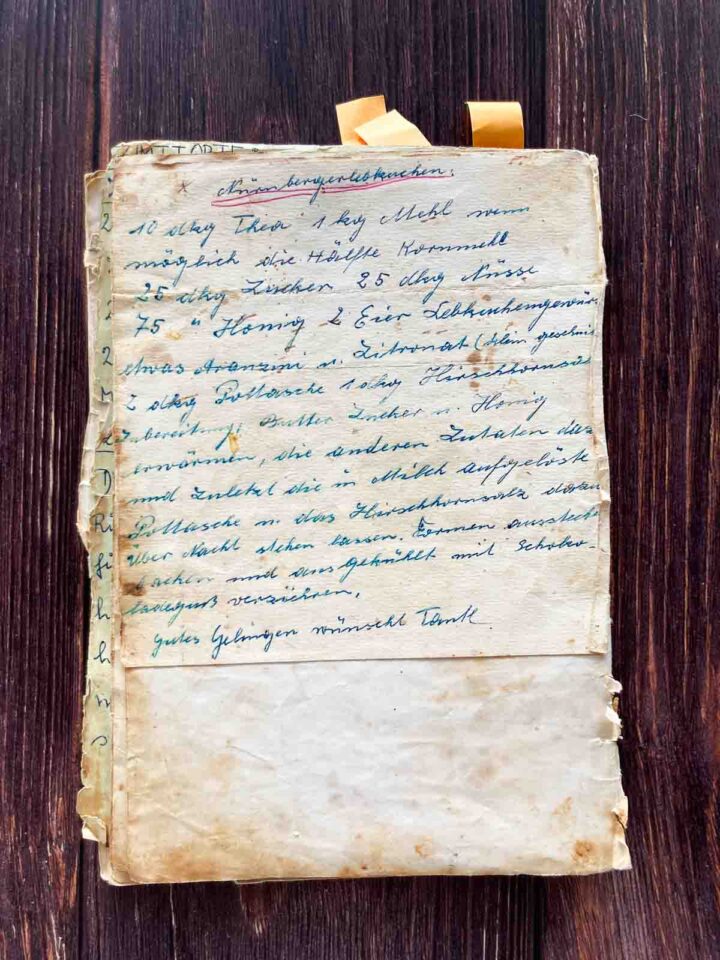 UMTTORTE
x Nürnbergerlebkuchen.
10 dkg Thea 1 kg Mehl wenn
möglich die Hälfte Kornmehl
25 dkg Zucker 25 dkg Nüsse
75 " Honig 2 Eier Lebkuchengewür
etwas Aranzini u. Zitronat (klein geschni
2 dkg Pottasche 1 dkg Hirschhornsa
Zubereitung, Butter Zucker u. Honig
erwärmen, die anderen Zutaten daz
und zuletzt die in Milch aufgelöste
Pottasche u. das Hirschhornsalz dazu
über Nacht stehen lassen. Formen ausstech
backen und ausgekühlt mit Schoko-
ladeguß verziehren.
gutes Gelingen wünscht Tante